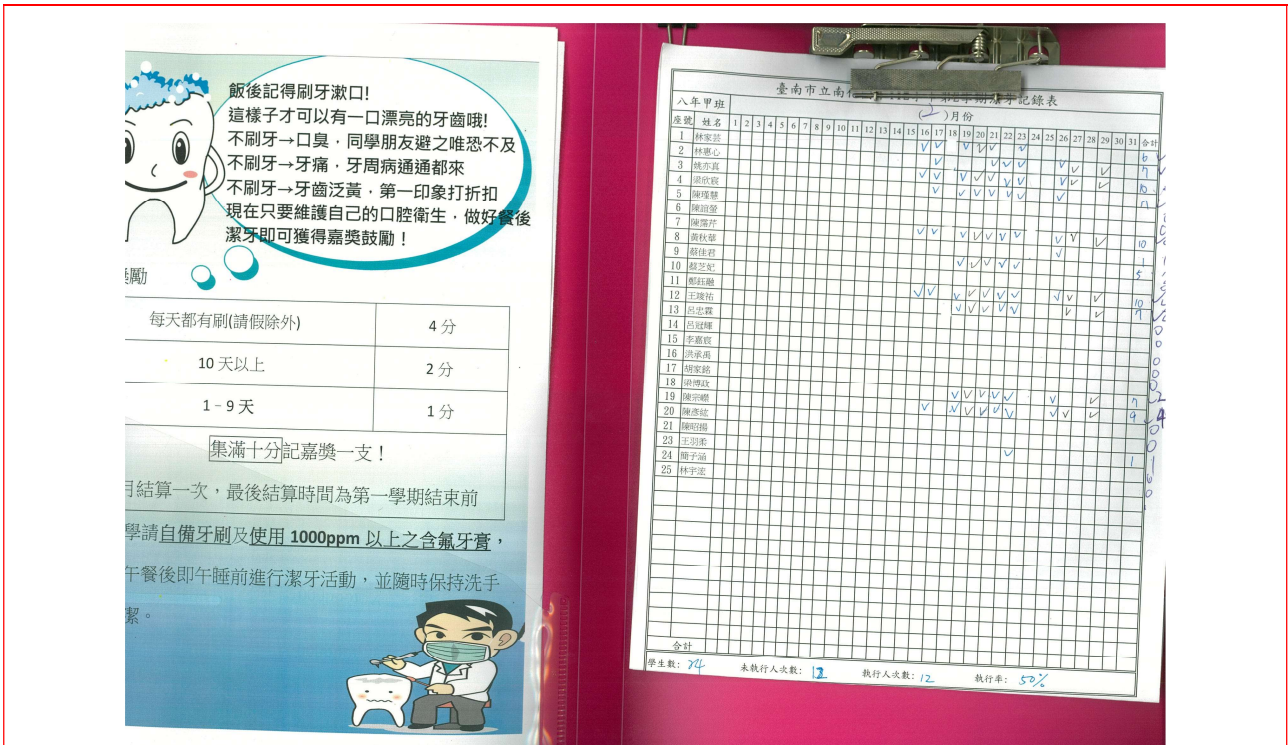 飯後記得刷牙漱口!
這樣子才可以有一口漂亮的牙齒哦!
不刷牙→口臭，同學朋友避之唯恐不及
不刷牙→牙痛，牙周病通通都來
不刷牙→牙齒泛黃，第一印象打折扣
現在只要維護自己的口腔衛生，做好餐後
潔牙即可獲得嘉獎鼓勵！
勵
每天都有刷(請假除外) 4 分
10 天以上 2 分
1－9 天 1 分
集滿十分記嘉獎一支！
月結算一次，最後結算時間為第一學期結束前
學請自備牙刷及使用 1000ppm 以上之含氟牙膏，
午餐後即午睡前進行潔牙活動，並隨時保持洗手
潔。
臺南市立南
記錄表
八年甲班 (2)月份
座號 姓名 1 2 3 4 5 6 7 8 9 10 11 12 13 14 15 16 17 18 19 20 21 22 23 24 25 26 27 28 29 30 31 合計
1 林家芸 6
2 林惠心 7
3 姚亦真 10
4 梁欣宸
5 陳瑾慧
6 陳誼螢
7 陳霈芹
8 黃秋華 10
9 蔡佳君 1
10 蔡芝妃 5
11 鄭鈺融
12 王琰祐 10
13 呂忠霖 7
14 呂冠輝
15 李嘉宸
16 洪承禹
17 胡家銘
18 梁博政
19 陳宗 7
20 陳彥紘 9
21 陳昭揚
23 王羽柔
24 簡子涵 1
25 林宇浤
合計
學生數: 24 未執行人次數: 12 執行人次數: 12 執行率: 50%